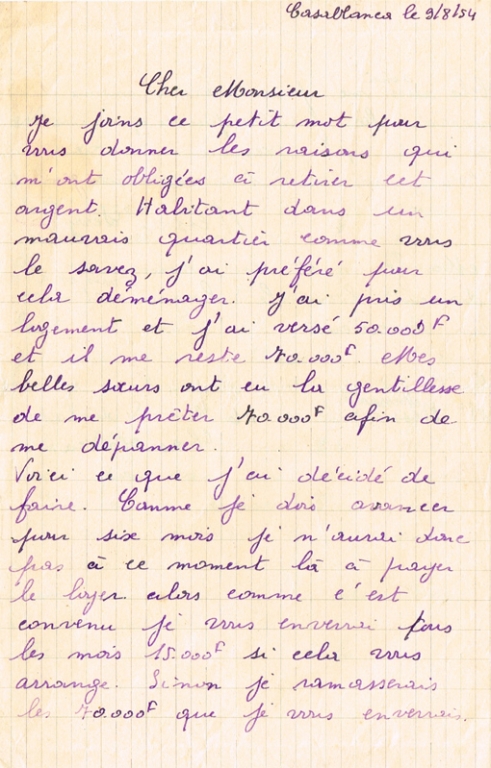 Casablanca le 9/8/54
Cher Monsieur
Je joins ce petit mot pour
vous donner les raisons qui
m'ont obligées à retirer cet
argent. Habitant dans un
mauvais quartier comme vous
le savez, j'ai préféré pour
cela déménager. J'ai pris un
logement et j'ai versé 50.000F
et il me reste 70.000F. Mes
belles sœurs ont eu la gentillesse
de me prêter 70.000F afin de
me dépanner.
Voici ce que j'ai décidé de
faire. Comme je dois avancer
pour six mois je n'aurai donc
pas à ce moment là à payer
le loyer alors comme c'est
convenu je vous enverrai tous
les mois 15.000F si cela vous
arrange. Sinon je ramasserais
les 70.000F que je vous enverrais.